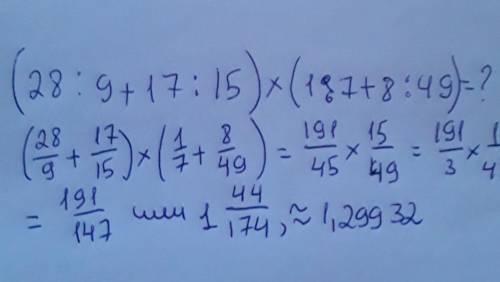 (28 : 9 + 17 : 15) × (1 : 7 + 8 : 49) = ?
(28/9 + 17/15) × (1/7 + 8/49) = 191/45 × 15/49 = 191/3 × 1/4
= 191/147 или 1 44/174, ≈ 1,29932